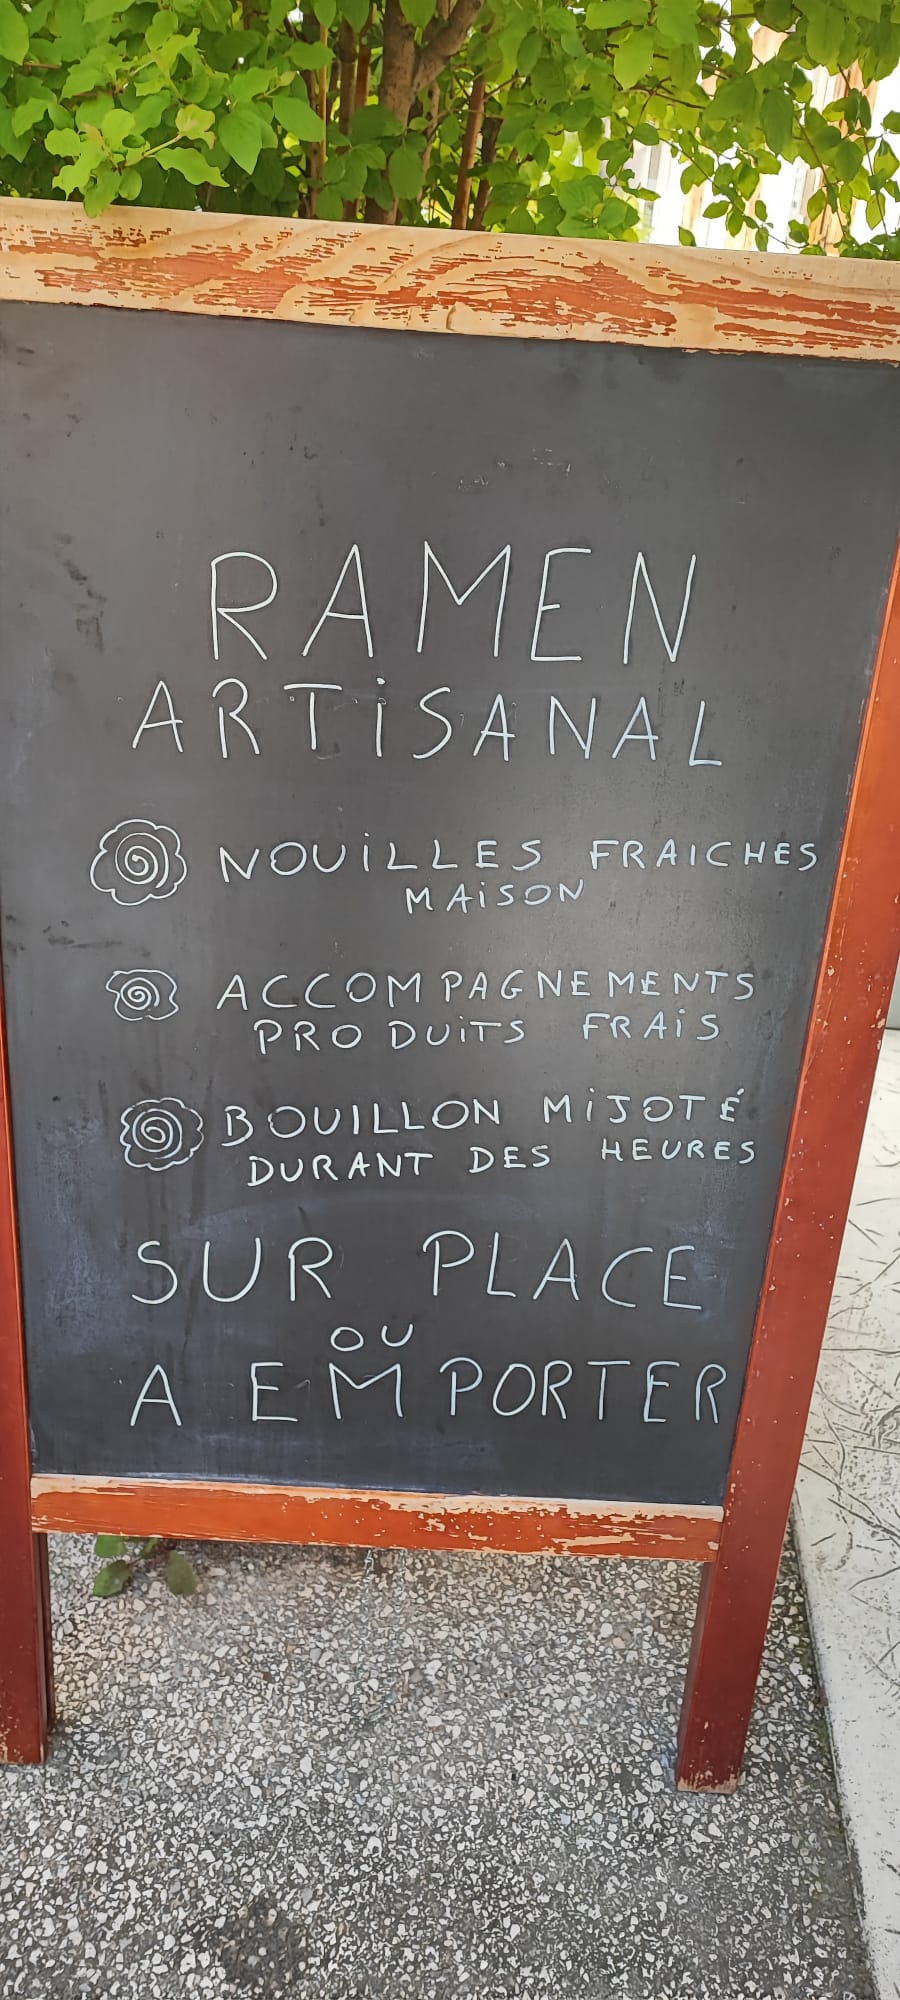 RAMEN
ARTiSANAL
NOUiLLES FRAICHES
MAiSON
ACCOMPAGNEMENTS
PRODUiTS FRAiS
BOUILLON MiJOTÉ
DURANT DES HEURES
SUR PLACE
OU
A EMPORTER